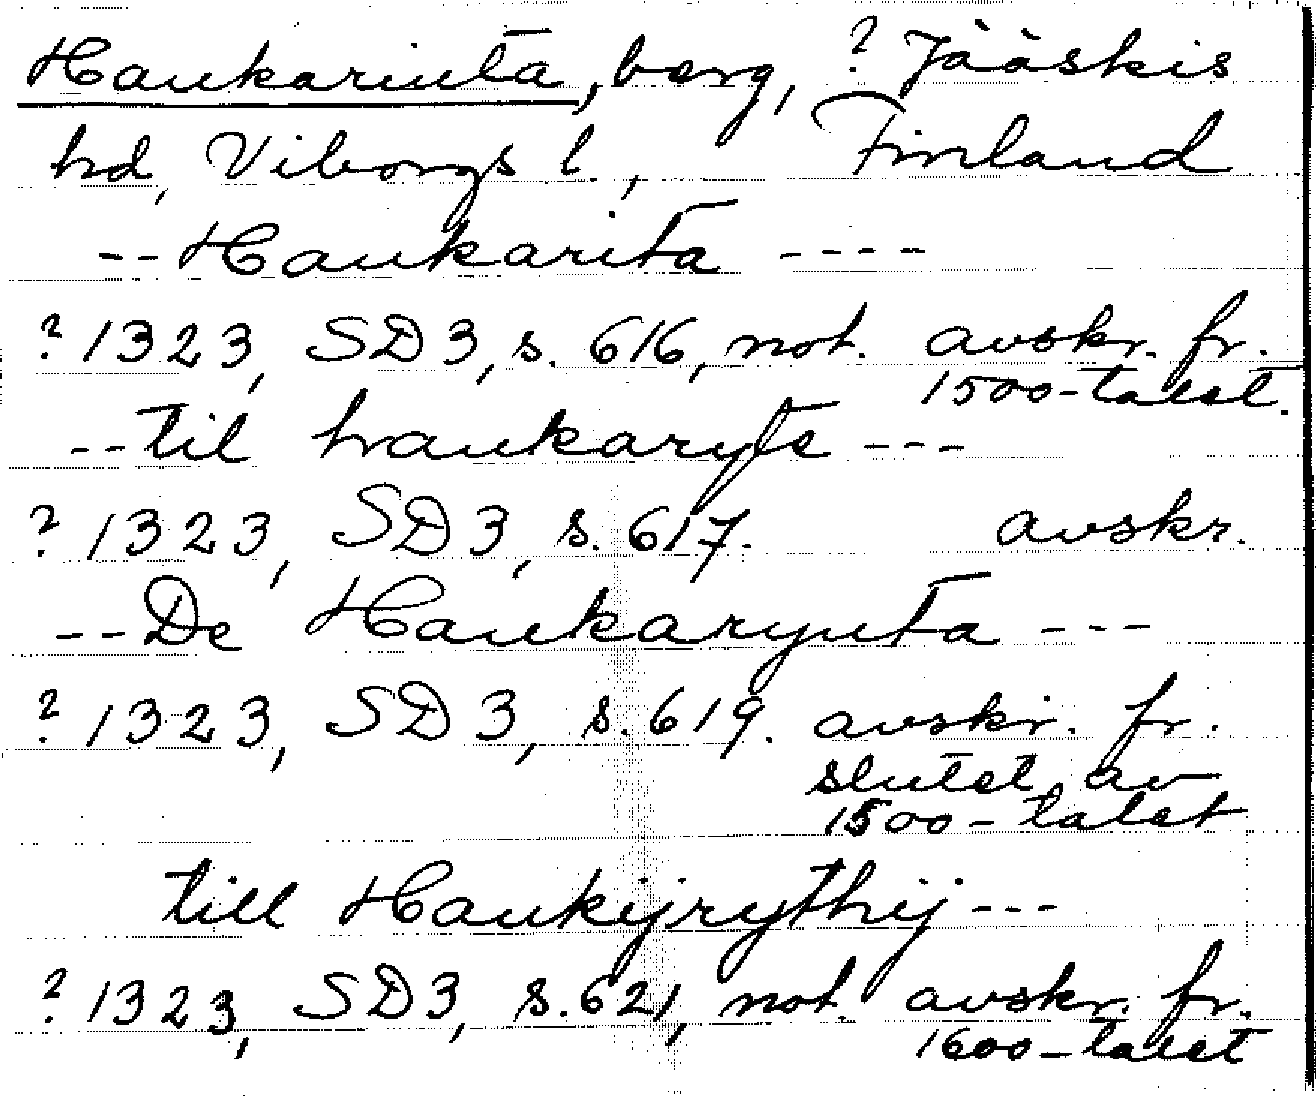 Haukarinta, berg, ? Jääskis
hd, Viborgs l., Finland
--Haukarita ----
? 1323, SD 3, s. 616, not. avskr. fr.
1500-talet.
--til haukaryte ---
? 1323, SD 3, s. 617. avskr.
--De Haukarynta ---
? 1323, SD 3, s. 619. avskr. fr.
slutet av
1500-talet
till Haukijrythij ---
? 1323, SD 3, s. 621, not. avskr. fr.
1600-talet